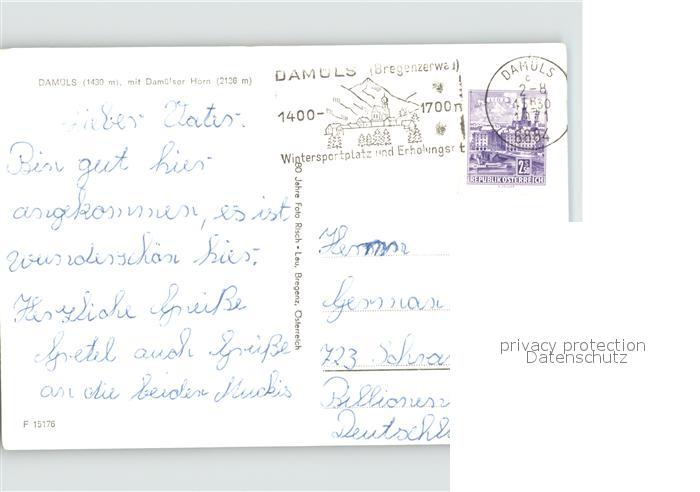 DAMÜLS (1430 m), mit Damülser Horn (2136 m)
Lieber Vater.
Bin gut hier
angekommen, es ist
wunderschön hier.
Herzliche Grüße
Gretel auch Grüße
an die beiden Muckis
F 15176
80 Jahre Foto Risch-Lau, Bregenz, Österreich
DAMÜLS (Bregenzerwald)
1400-
1700m
Wintersportplatz und Erholungsort
DAMÜLS
c
2-8
6884
2.50
REPUBLIK ÖSTERREICH
Herrn
German
723 Schra
Billionen
Deutschl
privacy protection
Datenschutz